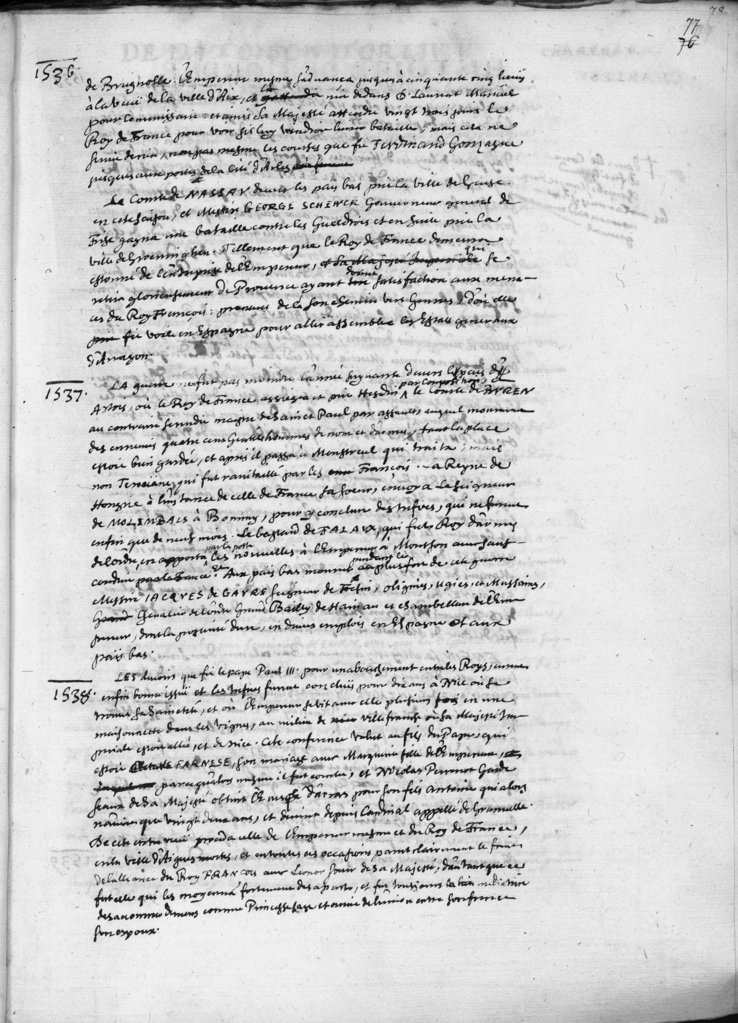 77
76
1536
de Brugnolle. l'Empereur mesme s'advança jusques à cinquante cinq lieües
à la veüe de la ville d'Aix, et dedans S. Laurent Manuel
pour Commissaire: et apres sa Majesté attendu vingt trois jours le
Roy de France pour voir s'il luy viendroit livrer bataille, mais cela ne
servit de rien, non pas mesme les courses que fit FERDINAND Gonzague
jusques aux portes de la Cité d'Arles
Le Comte de NASSAV devers les pays bas prit la ville de Guise
en ceste saison, et Messire GEORGE SCHENCK Gouverneur general de
Frise gagna une bataille contre les Gueldrois et en suite prit la
ville de Groeninghen. Tellement que le Roy de France demeura
estonné de l'Empereur, qui se
retira glorieusement de Provence ayant donné satisfaction aux mena-
ces du Roy François: prenant de là son chemin vers Gennes, d'où elle
fit voile en Espagne pour aller assembler les Estats generaux
d'Arragon.
1537.
LA guerre ne fut pas moindre l'année suyvante devers le pays d'
Artois, où le Roy de France assiegea et prit Hesdin par composition, le Comte de BVREN
au contraire se rendit maistre de Sainct Paul par assault auquel moururent
des ennemis quatre cens Gentilshommes de nom et d'armes, tant la place
estoit bien gardée, et apres il passa à Monstreul qui traita, mais
non Teroüane, qui fut ravitaillé par les François. La Reyne de
Hongrie à l'instance de celle de France sa soeur, envoya le Seigneur
de MOLEMBAIS à Bommy, pour y conclure des trefves, qui ne furent
enfin que de neuf mois. Le bastard de FALAIX, qui fut Roy d'armes
de l'ordre, en apporta par la poste les nouvelles à l'Empereur à Montson
conduit par la France. Aux pais bas mourut pendant le plus fort de cete guerre
Messire IACQVES de GAVRE seigneur de Fresin, Olignies, Ugies, et Mussains,
Chevalier de l'ordre, Grand Bailly de Hainau et chambellan de l'Em-
pereur, en divers emplois en Espagne et aux
pais bas.
1538.
LES devoirs que fit le pape Paul III. pour un abouchement entre les Roys, eurent
enfin bonne issue et les trefves furent concluës pour dix ans à Nice où se
trouva sa Saincteté, et où l'Empereur se vit avec elle plusieurs fois en une
maisonnette dans les vignes, au milieu de ville franche où sa Majesté Im-
periale estoit allée, et de Nice. Cete conference valut au fils du Pape, qui
estoit Octave FARNESE, son mariage avec Marguerite fille de l'Empereur,
parce qu'alors mesme il fut conclu, et Nicolas Perrenot Garde
seaux de sa Majesté obtint l'Evesché d'Arras pour son fils Antoine qui alors
n'avoit que vingt deux ans, et devint depuis Cardinal appellé de Granvelle.
De cete entreveuë proceda celle de l'Empereur mesme et du Roy de France,
en la ville d'Aigues mortes, et en toutes ces occasions parut clairement le fruict
de l'alliance du Roy FRANÇOIS avec Leonor soeur de sa Majesté, d'autant que ce
fut elle qui les moyenna fortement de sa part, et fut tousjours la bien
comme Princesse sage et amie de l'union entre son frere et
son espoux.